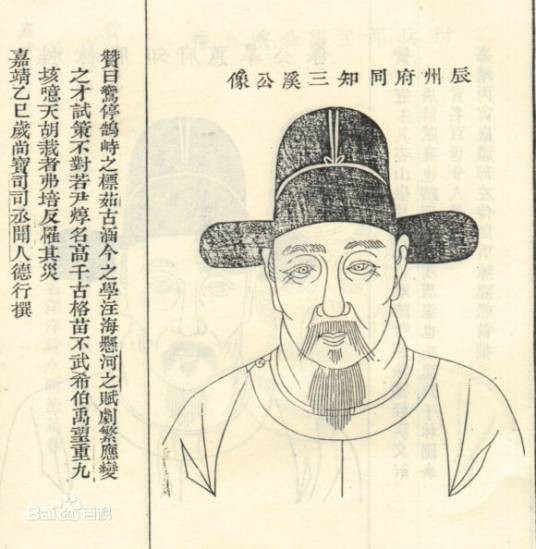 辰州府同知三溪公像
贊曰鸞停鵠峙之標茹古涵今之學注海懸河之賦劇繁應變
之才試策不對若尹焞名高千古格苗不武希伯禹望重九
垓噫天胡栽者弗培反罹其災
嘉靖乙巳歲尚寶司司丞聞人德行撰
Bai百科